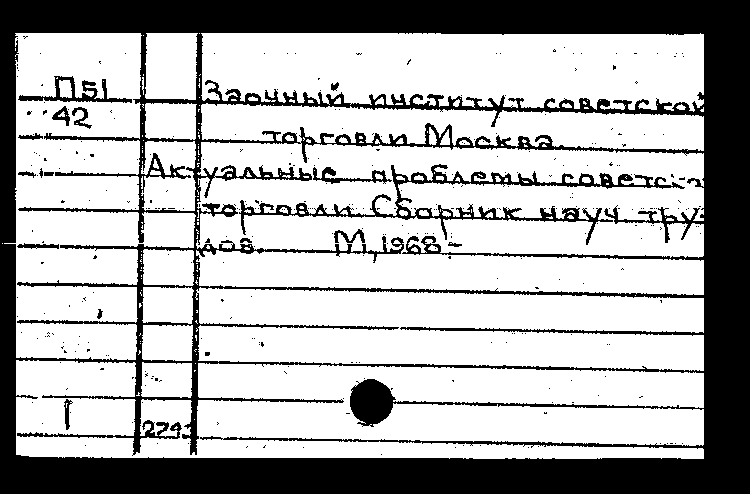 П51 Заочный институт советской
42 торговли Москва.
Актуальные проблемы советс
торговли. Сборник науч тру-
дов. М, 1968-
1